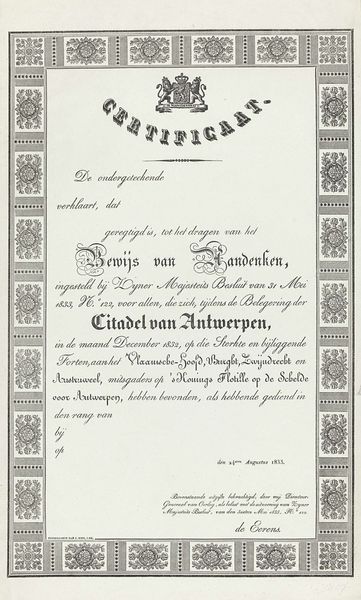 CERTIFICAAT.
De ondergeteekende
verklaart, dat
geregtigd is, tot het dragen van het
Bewijs van Aandenken,
ingesteld bij Zijner Majesteits Besluit van 31 Mei
1833, N.º 122, voor allen, die zich, tijdens de Belegering der
Citadel van Antwerpen,
in de maand December 1832, op die Sterkte en bijliggende
Forten, aan het Vlaamsche-Hoofd, Burght, Zwijndrecht en
Austruweel, mitsgaders op 's Konings Flotille op de Schelde
voor Antwerpen, hebben bevonden, als hebbende gediend in
den rang van
bij
op
den 24sten Augustus 1833.
Bovenstaande uitgifte bekrachtigd, door mij Directeur
Generaal van Oorlog, als belast met de uitvoering van Zijner
Majesteits Besluit, van den
de Eerens.